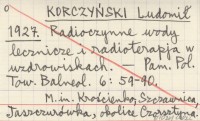 KORCZYŃSKI Ludomił
1927. Radioczynne wody
lecznicze i radioterapja w
uzdrowiskach. — Pam. Pol.
Tow. Balneol. 6: 59-90.
M. in. Krościenko, Szczawnica,
Jaszczurówka, okolice Czorsztyna.